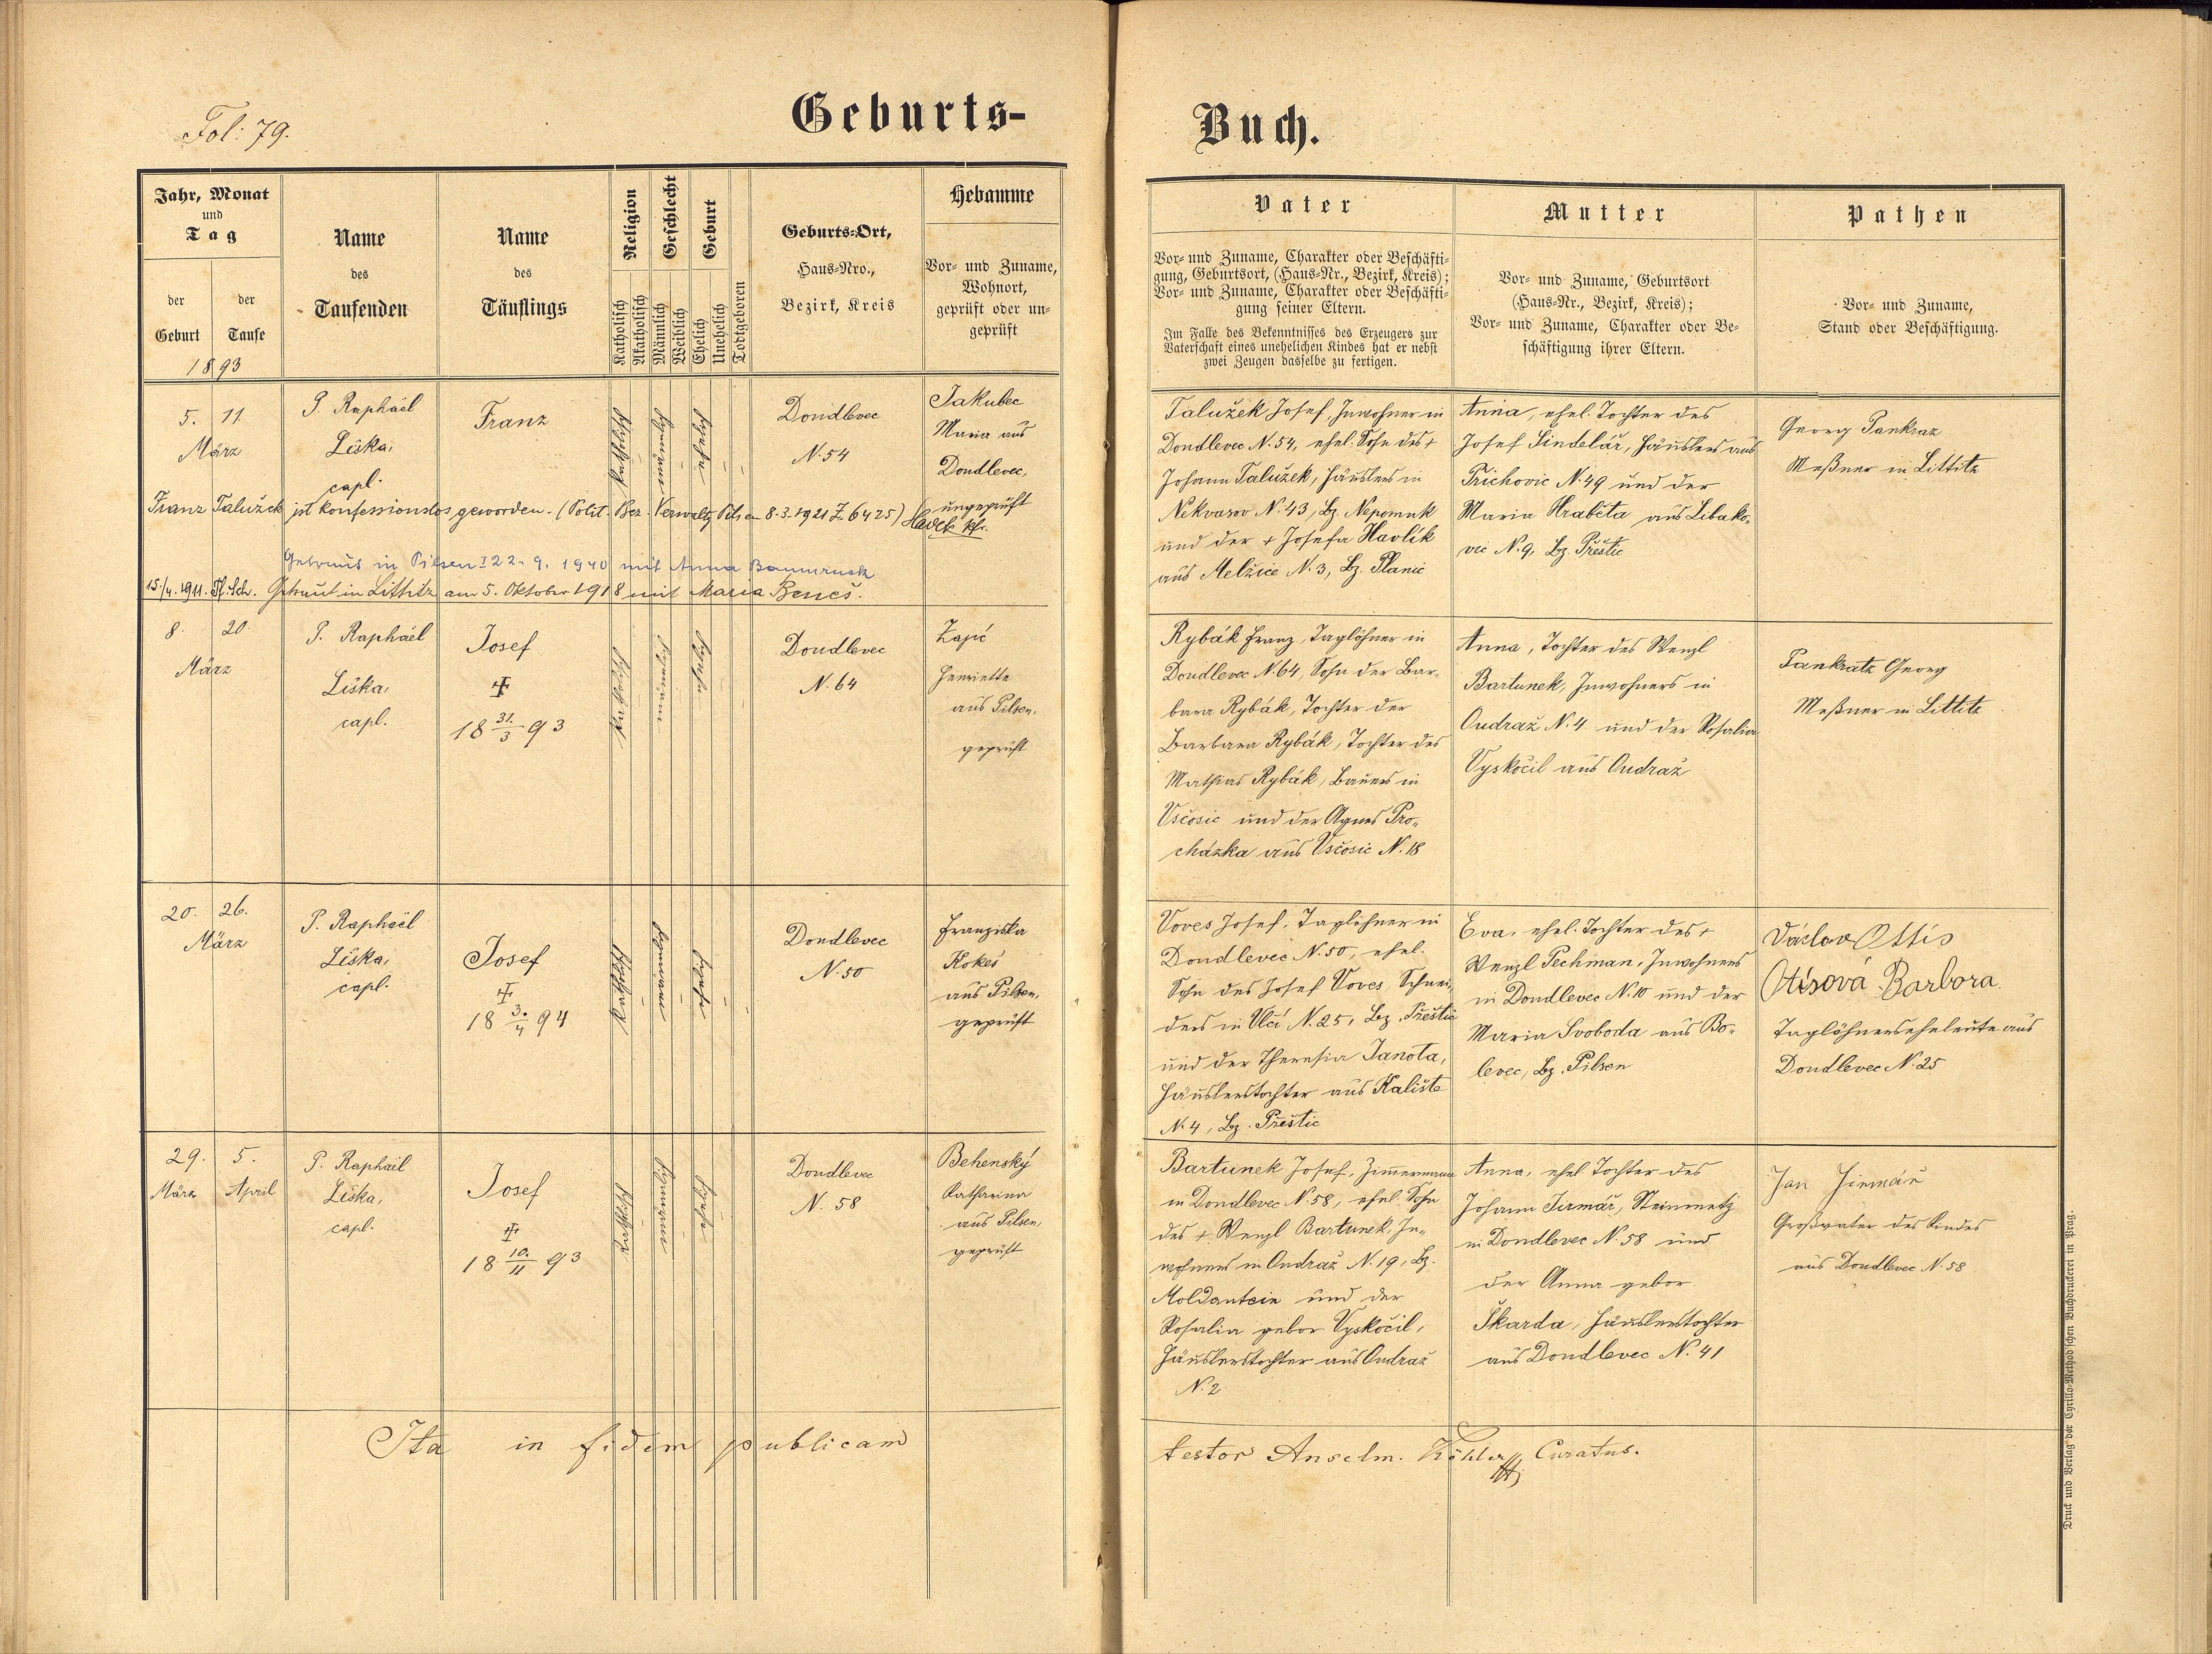 Fol: 79.
Geburts-
Buch.
Jahr, Monat
und
Tag
der
Geburt
der
Taufe
1893
Name
des
Taufenden
Name
des
Täuflings
Religion
Katholisch
Akatholisch
Geschlecht
Männlich
Weiblich
Geburt
Ehelich
Unehelich
Todtgeboren
Geburts-Ort,
Haus-Nro.,
Bezirk, Kreis
Hebamme
Vor- und Zuname,
Wohnort,
geprüft oder un-
geprüft
Vater
Vor- und Zuname, Charakter oder Beschäfti-
gung, Geburtsort, (Haus-Nr., Bezirk, Kreis);
Vor- und Zuname, Charakter oder Beschäfti-
gung seiner Eltern.
Im Falle des Bekenntnisses des Erzeugers zur
Vaterschaft eines unehelichen Kindes hat er nebst
zwei Zeugen dasselbe zu fertigen.
Mutter
Vor- und Zuname, Geburtsort
(Haus-Nr., Bezirk, Kreis);
Vor- und Zuname, Charakter oder Be-
schäftigung ihrer Eltern.
Pathen
Vor- und Zuname,
Stand oder Beschäftigung.
5. 11.
März
P. Raphaël
Liška,
capl.
Franz
Katholisch
Dondlevec
N. 54
Jakubec
Maria aus
Dondlevec,
ungeprüft
Talužek Josef, Inwohner in
Dondlevec N. 54, ehel. Sohn des +
Johann Talužek, Häuslers in
Nekvasov N. 43, Bz. Nepomuk
und der + Josefa Havlík
aus Melžice N. 3, Bz. Planic
Anna, ehel. Tochter des
Josef Šindelář, Häuslers aus
Přichovic N. 49 und der
Maria Hraběta aus Libako-
vic N. 9, Bz. Přestic
Georg Pankraz
Meßner in Littitz
Franz Talužek ist konfessionslos geworden. (Polit. Bez. Verwaltg Pilsen 8.3.1921 Z. 6425)
Getraut in Pilsen I 22. 9. 1940 mit Anna Baumruck
15/4. 1911. Tf. Sch. Getraut in Littitz am 5. Oktober 1918 mit Maria Beneš.
8. 20.
März
P. Raphaël
Liška,
capl.
Josef
18 31./3 93
Katholisch
Dondlevec
N. 64
Zajíc
Henriette
aus Pilsen,
geprüft
Rybák Franz, Taglöhner in
Dondlevec N. 64, Sohn der Bar-
bara Rybák, Tochter der
Barbara Rybák, Tochter des
Mathias Rybák, Bauers in
Všcosic und der Agnes Pro-
cházka aus Všcosic N. 18
Anna, Tochter des Wenzl
Bartunek, Inwohners in
Oudraž N. 4 und der Rosalia
Vyskočil aus Oudraž
Pankratz Georg
Meßner in Littitz
20. 26.
März
P. Raphaël
Liška,
capl.
Josef
18 3./4 94
Katholisch
Dondlevec
N. 50
Franziska
Kokeš
aus Pilsen,
geprüft
Voves Josef, Taglöhner in
Dondlevec N. 50, ehel.
Sohn des Josef Voves, Schnei-
ders in Vlčí N. 25, Bz. Přestic
und der Theresia Janota,
Häuslerstochter aus Kalište
N. 4, Bz. Přestic
Eva, ehel. Tochter des +
Wenzl Pechman, Inwohners
in Dondlevec N. 10 und der
Maria Svoboda aus Bo-
levec, Bz. Pilsen
Václav Ottis
Otisová Barbora
Taglöhnerseheleute aus
Dondlevec N. 25
29. 5.
März April
P. Raphaël
Liška,
capl.
Josef
18 10./11 93
Katholisch
Dondlevec
N. 58
Behenský
Katharina
aus Pilsen,
geprüft
Bartunek Josef, Zimmermann
in Dondlevec N. 58, ehel. Sohn
des + Wenzl Bartunek, In-
wohners in Oudraž N. 19, Bz.
Moldautein und der
Rosalia gebor. Vyskočil,
Häuslerstochter aus Oudraž
N. 2
Anna, ehel. Tochter des
Johann Jirmář, Steinmetz
in Dondlevec N. 58 und
der Anna gebor.
Škarda, Häuslerstochter
aus Dondlevec N. 41
Jan Jirmář
Großvater des Kindes
aus Dondlevec N. 58
Ita in fidem publicam
testor Anselm. Köhler Curatus.
Druck und Verlag der Cyrillo-Method'schen Buchdruckerei in Prag.